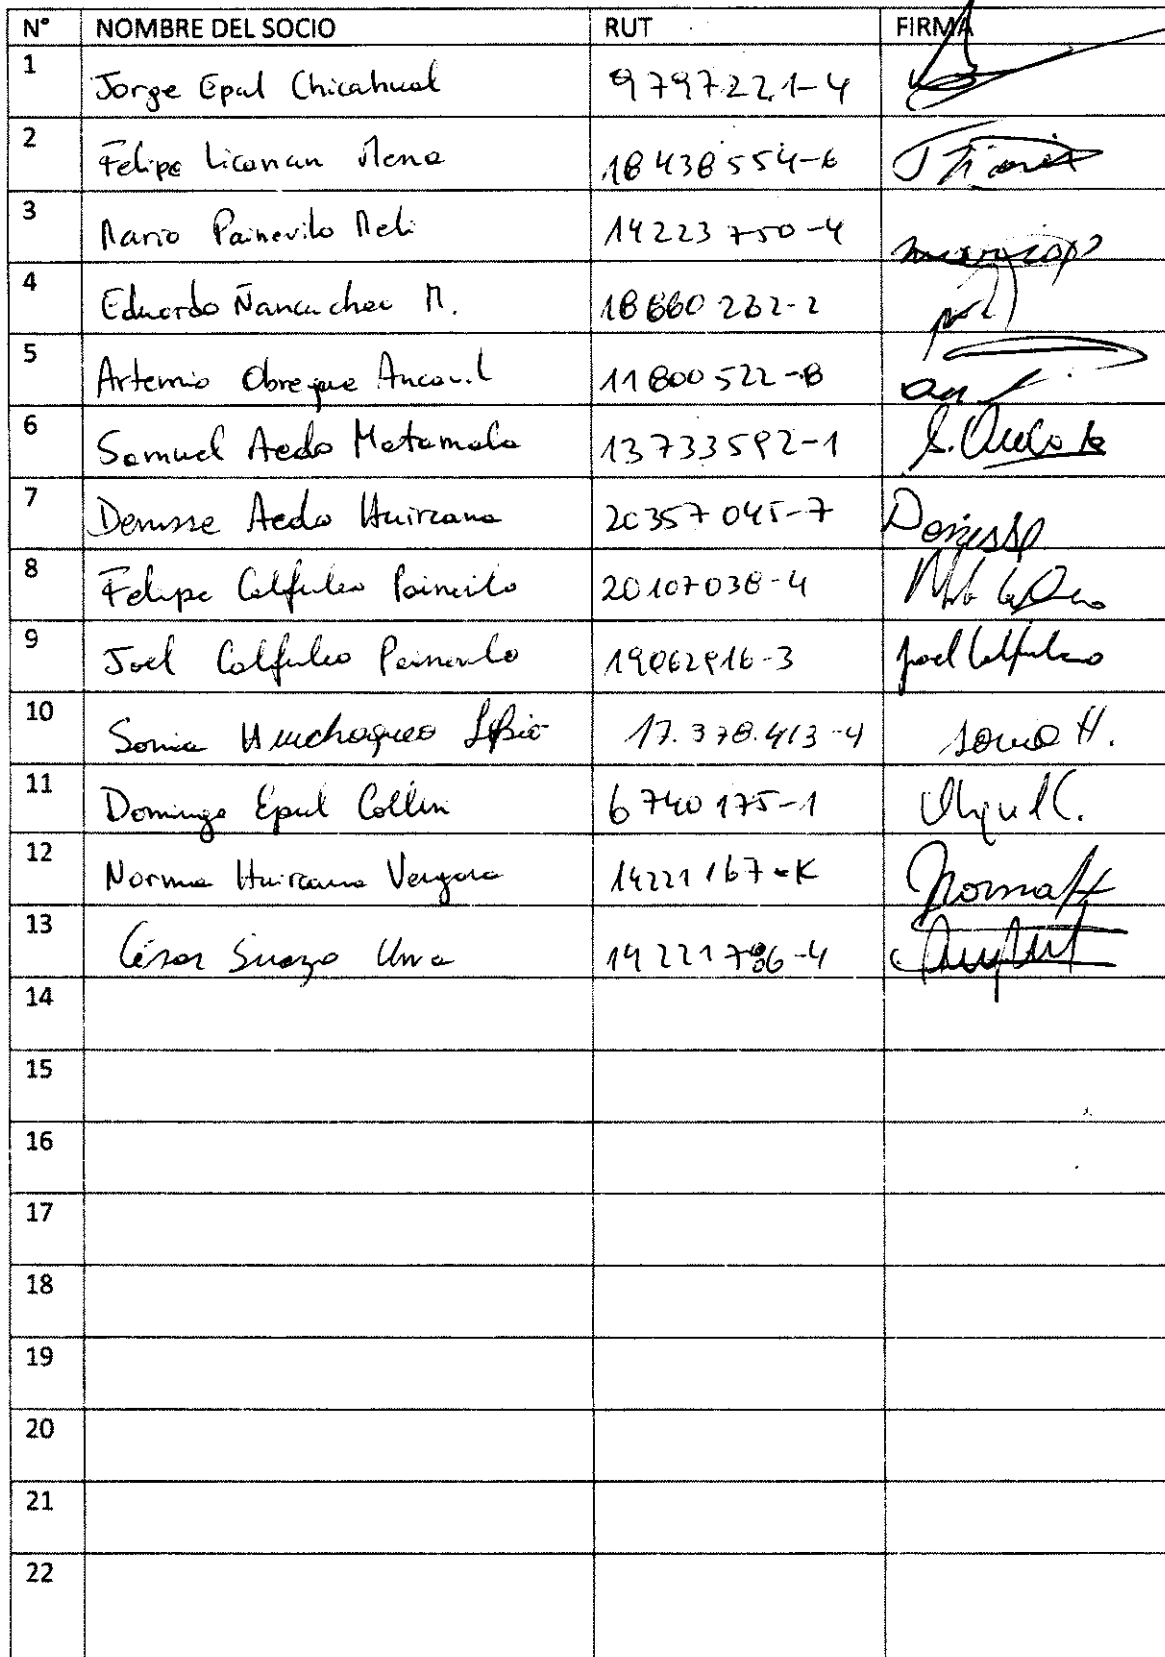 N° NOMBRE DEL SOCIO RUT FIRMA
1 Jorge Epul Chicahual 9797221-4
2 Felipe Licanan Mena 18438554-6
3 Mario Painevilo Meli 14223750-4
4 Eduardo Ñancucheo M. 18660262-2
5 Artemio Obreque Ancavil 11800522-8
6 Samuel Aedo Matamala 13733592-1
7 Denisse Aedo Huircana 20357045-7 Denisse
8 Felipe Calfuleo Painevilo 20107038-4
9 Joel Calfuleo Painevilo 19062916-3 Joel Calfuleo
10 Sonia Huichaqueo 17.378.413-4 Sonia H.
11 Domingo Epul Collin 6740175-1
12 Norma Huircana Vergara 14221167-K Norma H
13 César Suazo 14221786-4
14
15
16
17
18
19
20
21
22